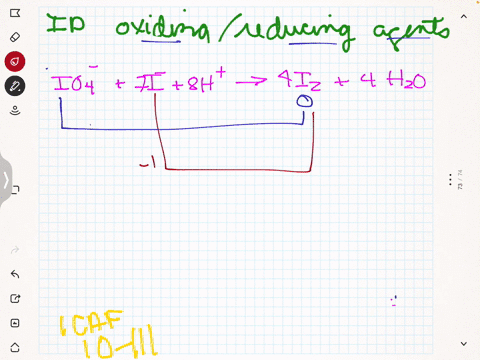 ID oxidizing/reducing agents
IO₄⁻ + 7I⁻ + 8H⁺ → 4I₂ + 4 H₂O
0
-1
73 / 74